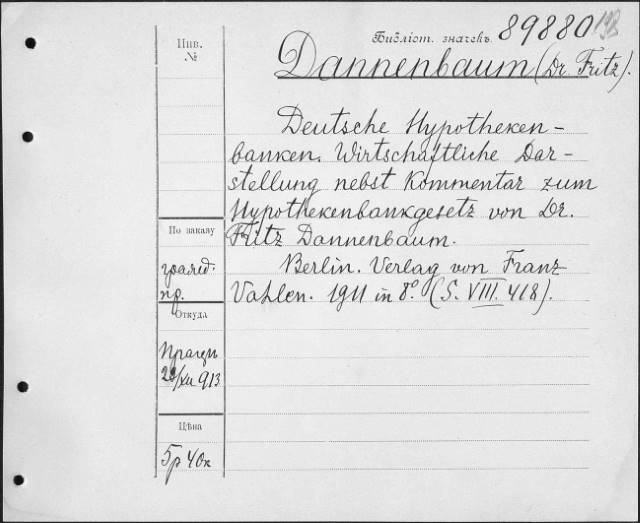 Библіот. значекъ 89880
Инв.
№
Dannenbaum (Dr. Fritz).
Deutsche Hypotheken-
banken. Wirtschaftliche Dar-
stellung nebst Kommentar zum
Hypothekenbankgesetz von Dr.
Fritz Dannenbaum.
Berlin. Verlag von Franz
Vahlen. 1911 in 8° (S. VIII. 418).
По заказу
гражд.
пр.
Откуда
913
Цѣна
5р 40к